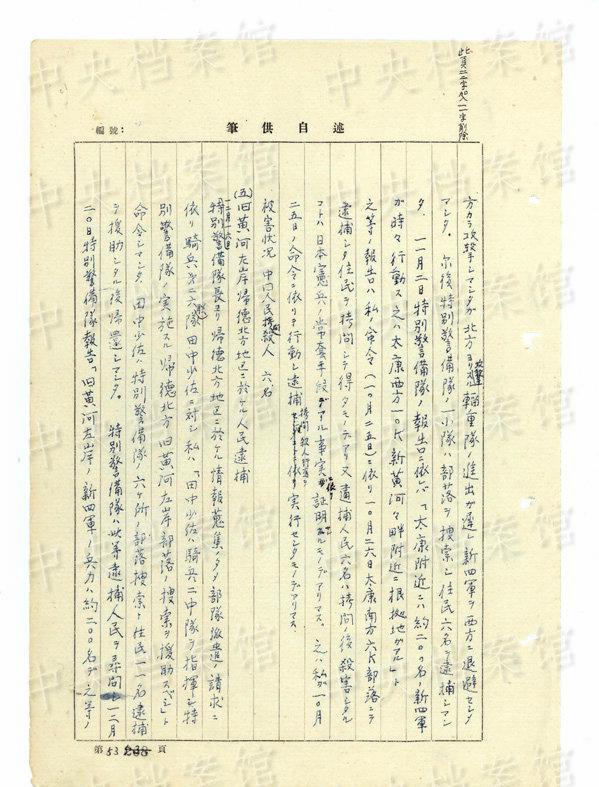 此頁二字加入一字削除
述自供筆
編號：
方カラ攻撃シマシタガ北方ヨリノ攻撃輜重隊ノ進出ガ遅レ新四軍ヲ西方ニ退避セシメ
マシタ。尓後特別警備隊ノ一小隊ハ部落ヲ捜索シ住民六名ヲ逮捕シマシ
タ．一一月二日特別警備隊ノ報告ニ依レバ「太康附近ニハ約二〇〇名ノ新四軍
ガ時々行動ス之ハ太康西方一〇粁新黄河々畔附近ニ根拠地ガアル」ト
之等ノ報告ハ私ノ命令（一〇月二五日）ニ依リ一〇月二六日太康南方六粁部落ニテ
逮捕シタ住民ヲ拷問シテ得タモノデアリ又逮捕人民六名ハ拷問ノ後殺害シタル
コトハ日本憲兵ノ常套手段デアル事実ニ依リ証明シ得ルモノデアリマス．之ハ私ガ一〇月
二五日ノ命令ニ依リテ行動シ逮捕拷問殺人ニ依リ実行セシタモノデアリマス．
被害状況　中国人民拷問殺人　六名
(五)旧黄河左岸帰徳北方地区ニ於ケル人民逮捕
一二月一六日特別警備隊長ヨリ帰徳北方地区ニ於ケル情報蒐集ノタメ部隊派遣ノ請求ニ
依リ騎兵第二六聯隊田中少佐ニ対シ私ハ「田中少佐ハ騎兵二中隊ヲ指揮シ特
別警備隊ノ実施スル帰徳北方旧黄河左岸部落ノ捜索ヲ援助スベシ」ト
命令シマシタ．田中少佐ハ特別警備隊ノ六ケ所ノ部落捜索ト住民一一名逮捕
ヲ援助シタル後帰還シマシタ。　特別警備隊ハ此等逮捕人民ヲ尋問シ一二月
二〇日特別警備隊報告「旧黄河左岸ノ新四軍ノ兵力ハ約二〇〇名デ之等ノ
第 53 頁
中央档案馆